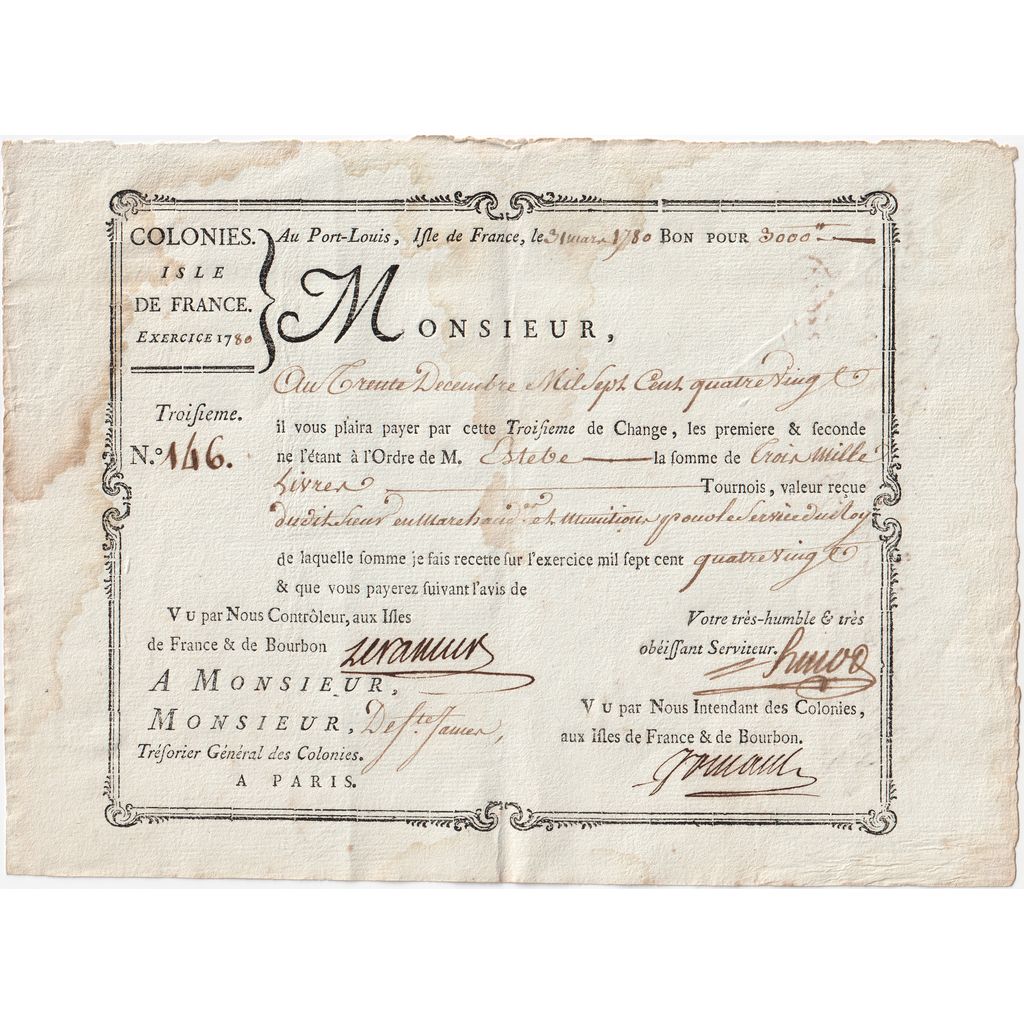 COLONIES.
ISLE
DE FRANCE.
EXERCICE 1780
Au Port-Louis, Iſle de France, le 31 mars 1780 BON POUR 3000 ᵗᵗ
MONSIEUR,
Au Trente Decembre Mil Sept Cent quatre Vingt
Troiſieme.
N.º 146.
il vous plaira payer par cette Troiſieme de Change, les premiere & ſeconde
ne l'étant à l'Ordre de M. Estebe la ſomme de Trois Mille
Livres Tournois, valeur reçue
dudit Sieur en Marchand.ˢᵉˢ et Munitions pour le Service du Roy
de laquelle ſomme je fais recette ſur l'exercice mil ſept cent quatre Vingt
& que vous payerez ſuivant l'avis de
VU par Nous Contrôleur, aux Iſles
de France & de Bourbon
Votre très-humble & très
obéiſſant Serviteur.
A MONSIEUR,
MONSIEUR, De Sᵗᵉ James,
Tréſorier Général des Colonies.
A PARIS.
VU par Nous Intendant des Colonies,
aux Iſles de France & de Bourbon.